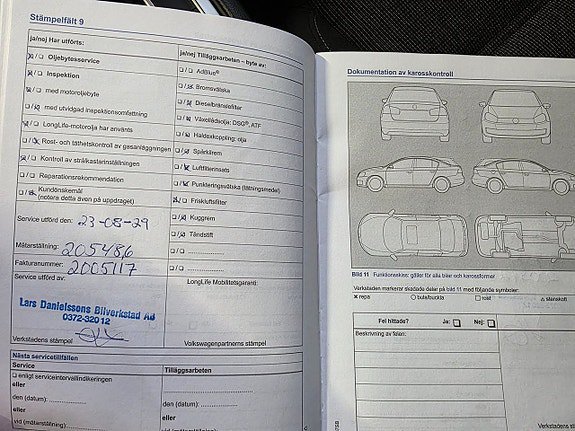 Stämpelfält 9
ja/nej Har utförts:
Oljebytesservice
Inspektion
med motoroljebyte
med utvidgad inspektionsomfattning
LongLife-motorolja har använts
Rost- och täthetskontroll av gasanläggningen
Kontroll av strålkastarinställningen
Reparationsrekommendation
Kundönskemål
(notera detta även på uppdraget)
Service utförd den: 23-08-29
Mätarställning: 205486
Fakturanummer: 2005117
Service utförd av:
Lars Danielssons Bilverkstad AB
0372-32012
Verkstadens stämpel
ja/nej Tilläggsarbeten – byte av:
AdBlue®
Bromsvätska
Dieselbränslefilter
Växellådsolja: DSG®, ATF
Haldexkoppling: olja
Spårkilrem
Luftfilterinsats
Punkteringsvätska (tätningsmedel)
Friskluftsfilter
Kuggrem
Tändstift
LongLife Mobilitetsgaranti:
Volkswagenpartnerns stämpel
Nästa servicetillfällen
Service
enligt serviceintervallindikeringen
eller
den (datum):
eller
vid (mätarställning):
Tilläggsarbeten
den (datum):
eller
vid (mätarställning):
Dokumentation av karosskontroll
Bild 11 Funktionsskiss: gäller för alla bilar och karossformer
Verkstaden markerar skadade delar på bild 11 med följande symboler:
x repa ○ bula/buckla □ rost △ stenskott
Fel hittade? Ja: Nej:
Beskrivning av felen:
Verkstadens